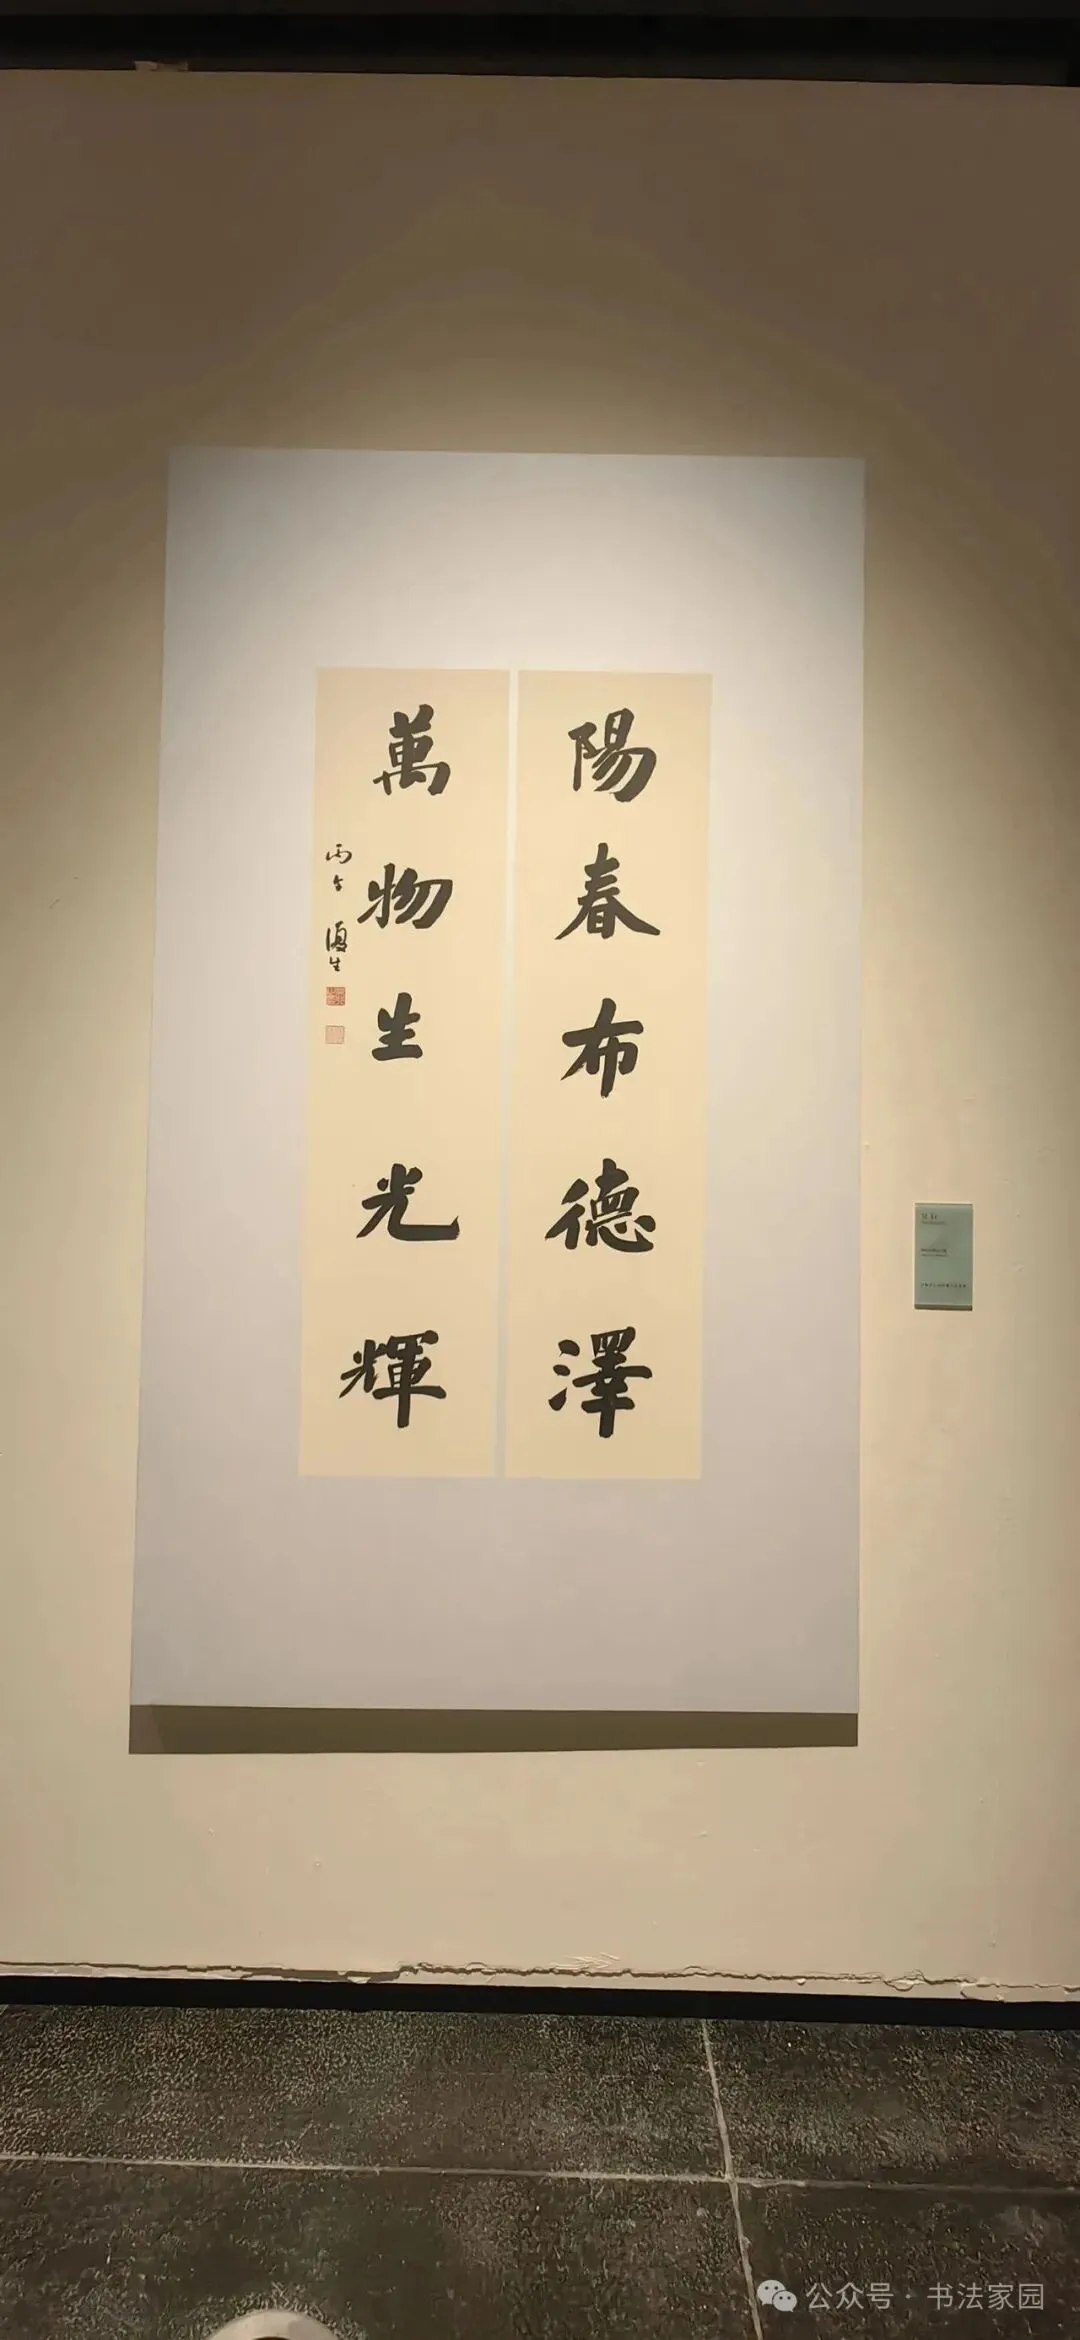 陽春布德澤
萬物生光輝
丙午
公众号·书法家园